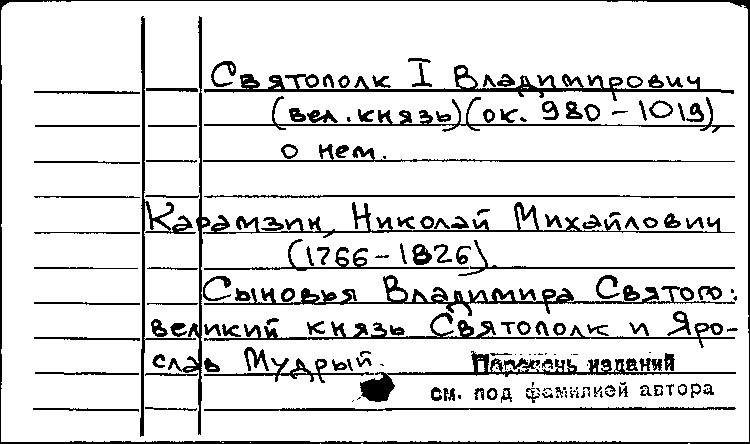 Святополк I Владимирович
(вел. князь) (ок. 980 – 1019),
о нем.
Карамзин, Николай Михайлович
(1766 – 1826).
Сыновья Владимира Святого:
великий князь Святополк и Яро-
слав Мудрый.
Перечень изданий
см. под фамилией автора